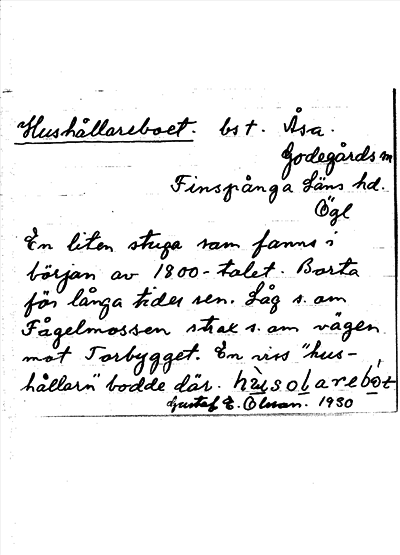 Hushållareboet. bst. Åsa.
Godegårds sn
Finspånga Läns hd.
Ögl
En liten stuga som fanns i
början av 1800-talet. Borta
för långa tider sen. Låg s. om
Fågelmossen strax s. om vägen
mot Torbygget. En viss "hus-
hållarn" bodde där. hùsolarebót
Gustaf E. Olsson. 1930